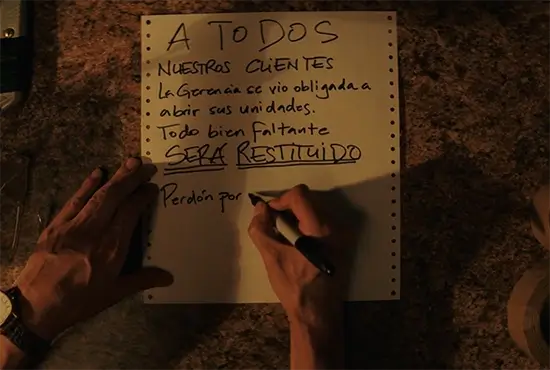 A TODOS
NUESTROS CLIENTES
La Gerencia se vio obligada a
abrir sus unidades.
Todo bien Faltante
SERÁ RESTITUIDO
Perdón por